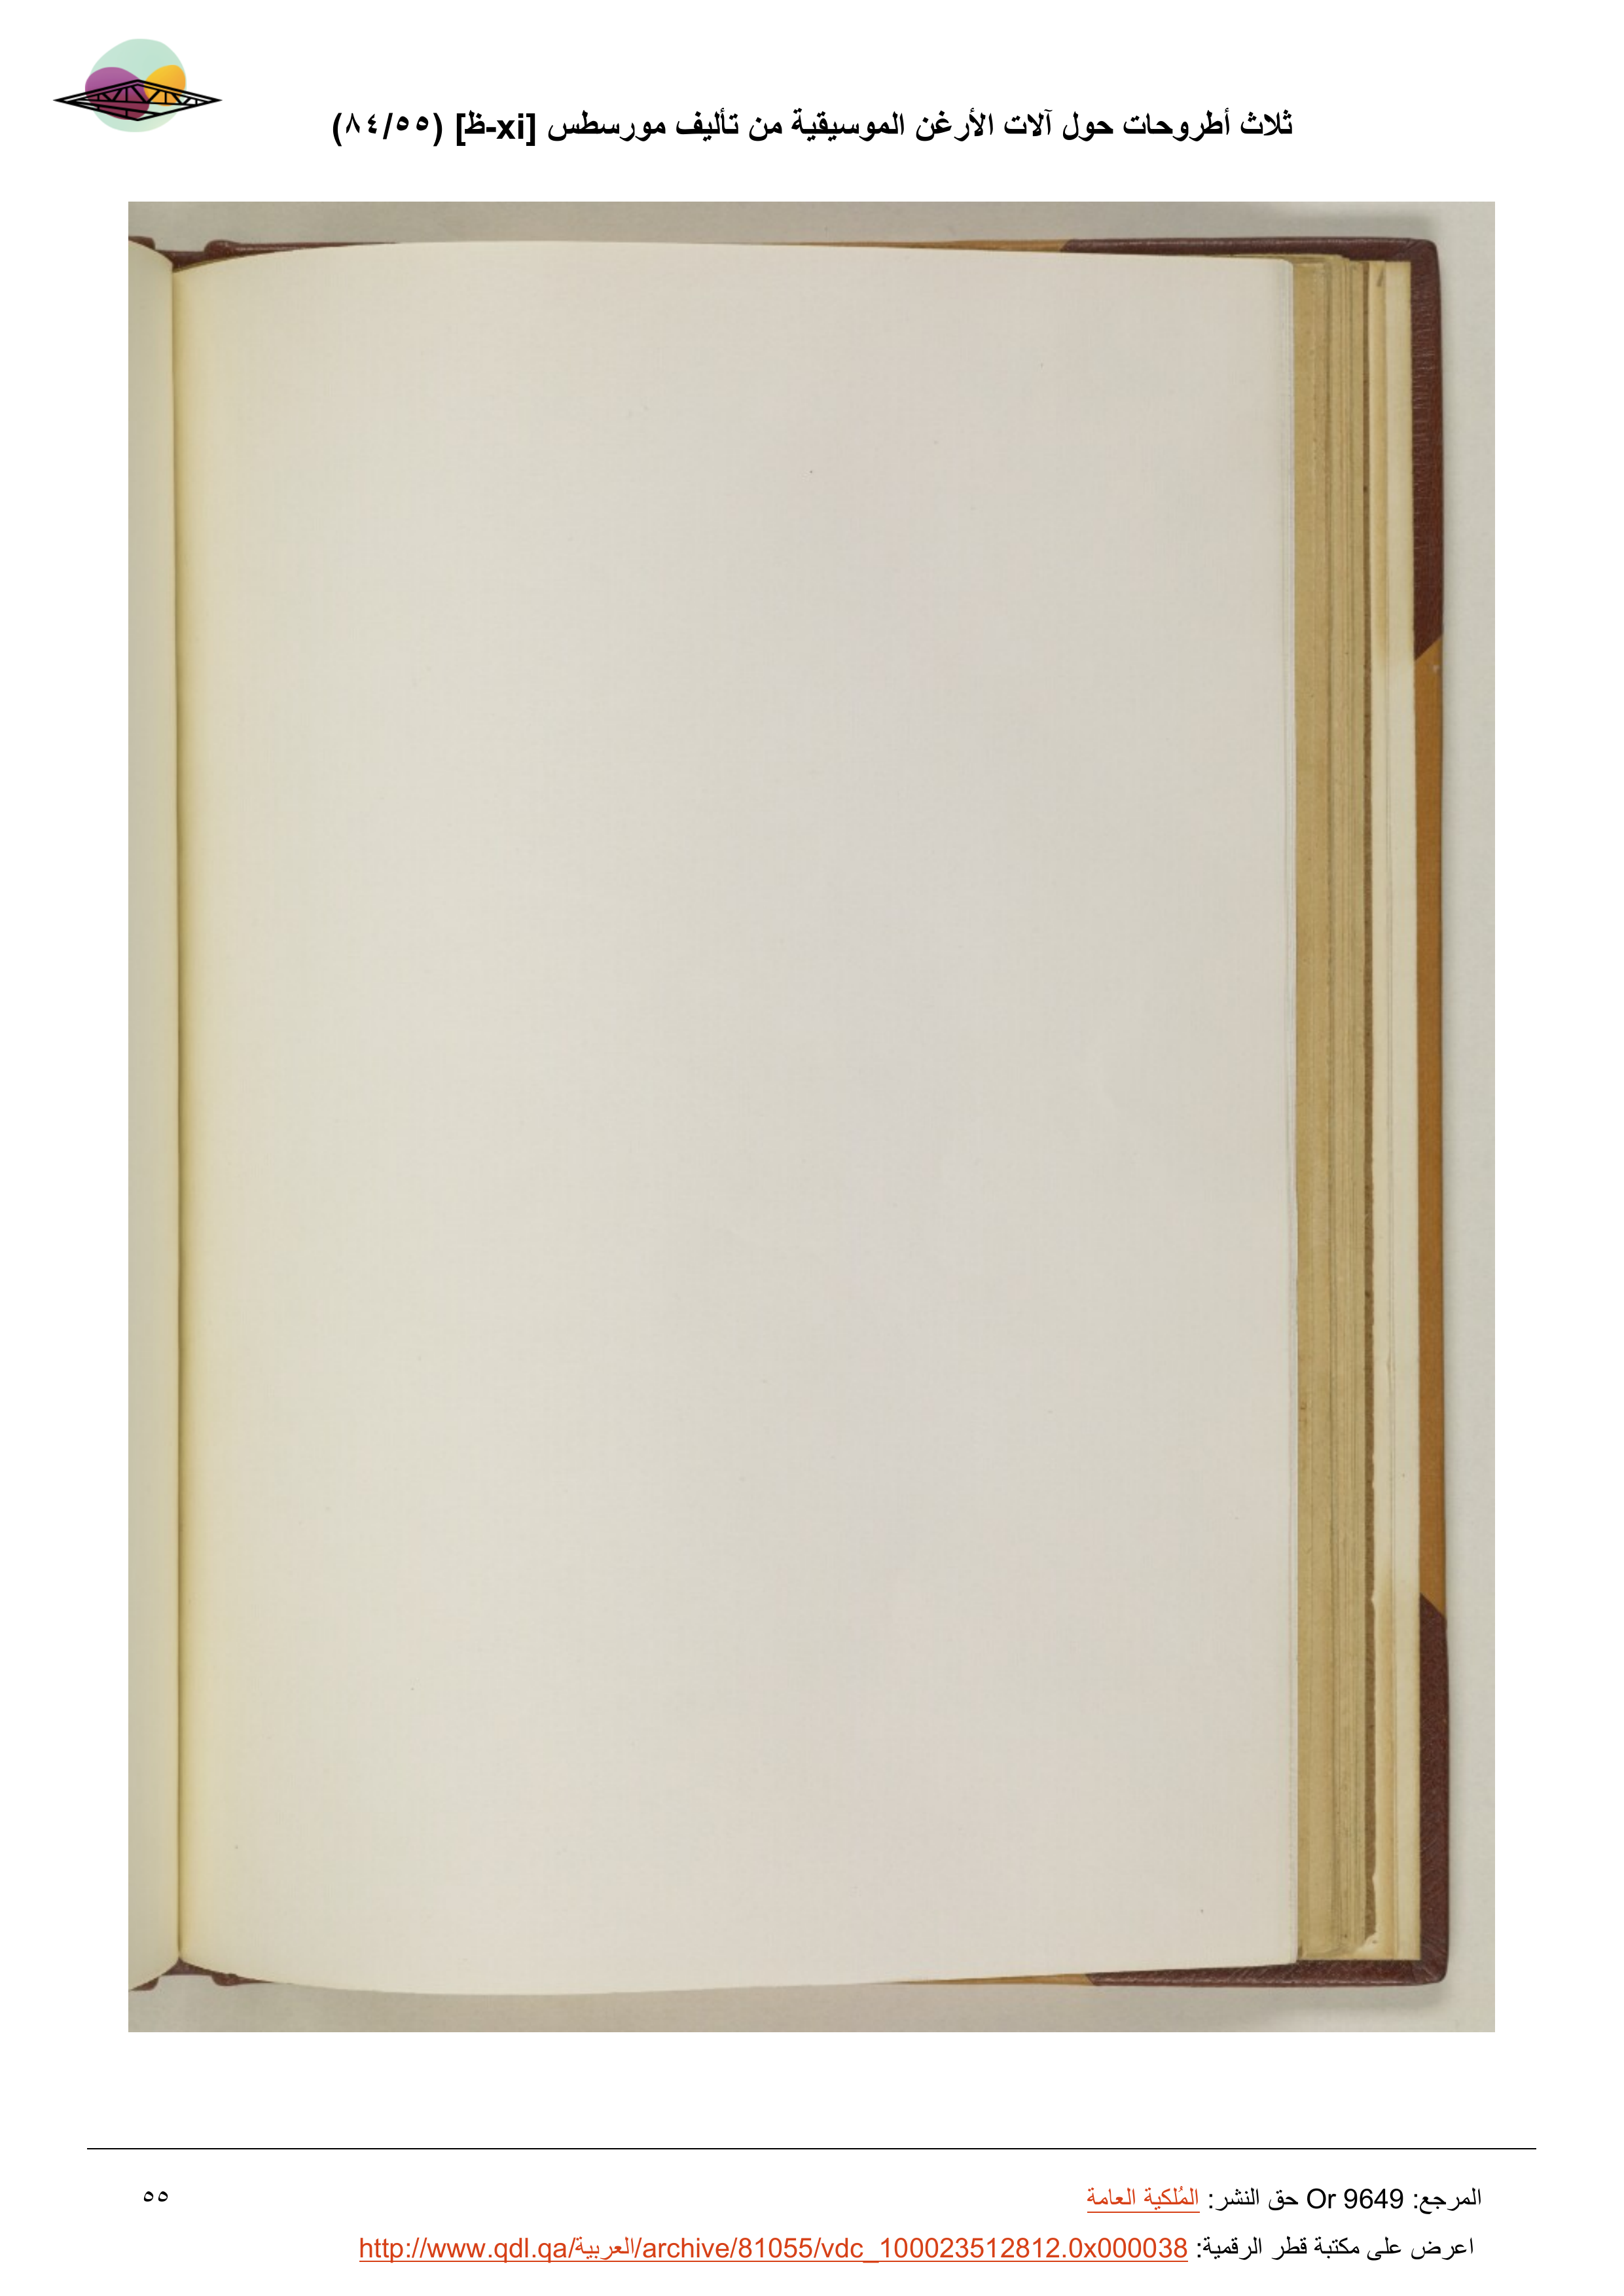 ثلاث أطروحات حول آلات الأرغن الموسيقية من تأليف مورسطس [xi-ظ] (٨٤/٥٥)
المرجع: Or 9649 حق النشر: المُلكية العامة
٥٥
اعرض على مكتبة قطر الرقمية: http://www.qdl.qa/العربية/archive/81055/vdc_100023512812.0x000038